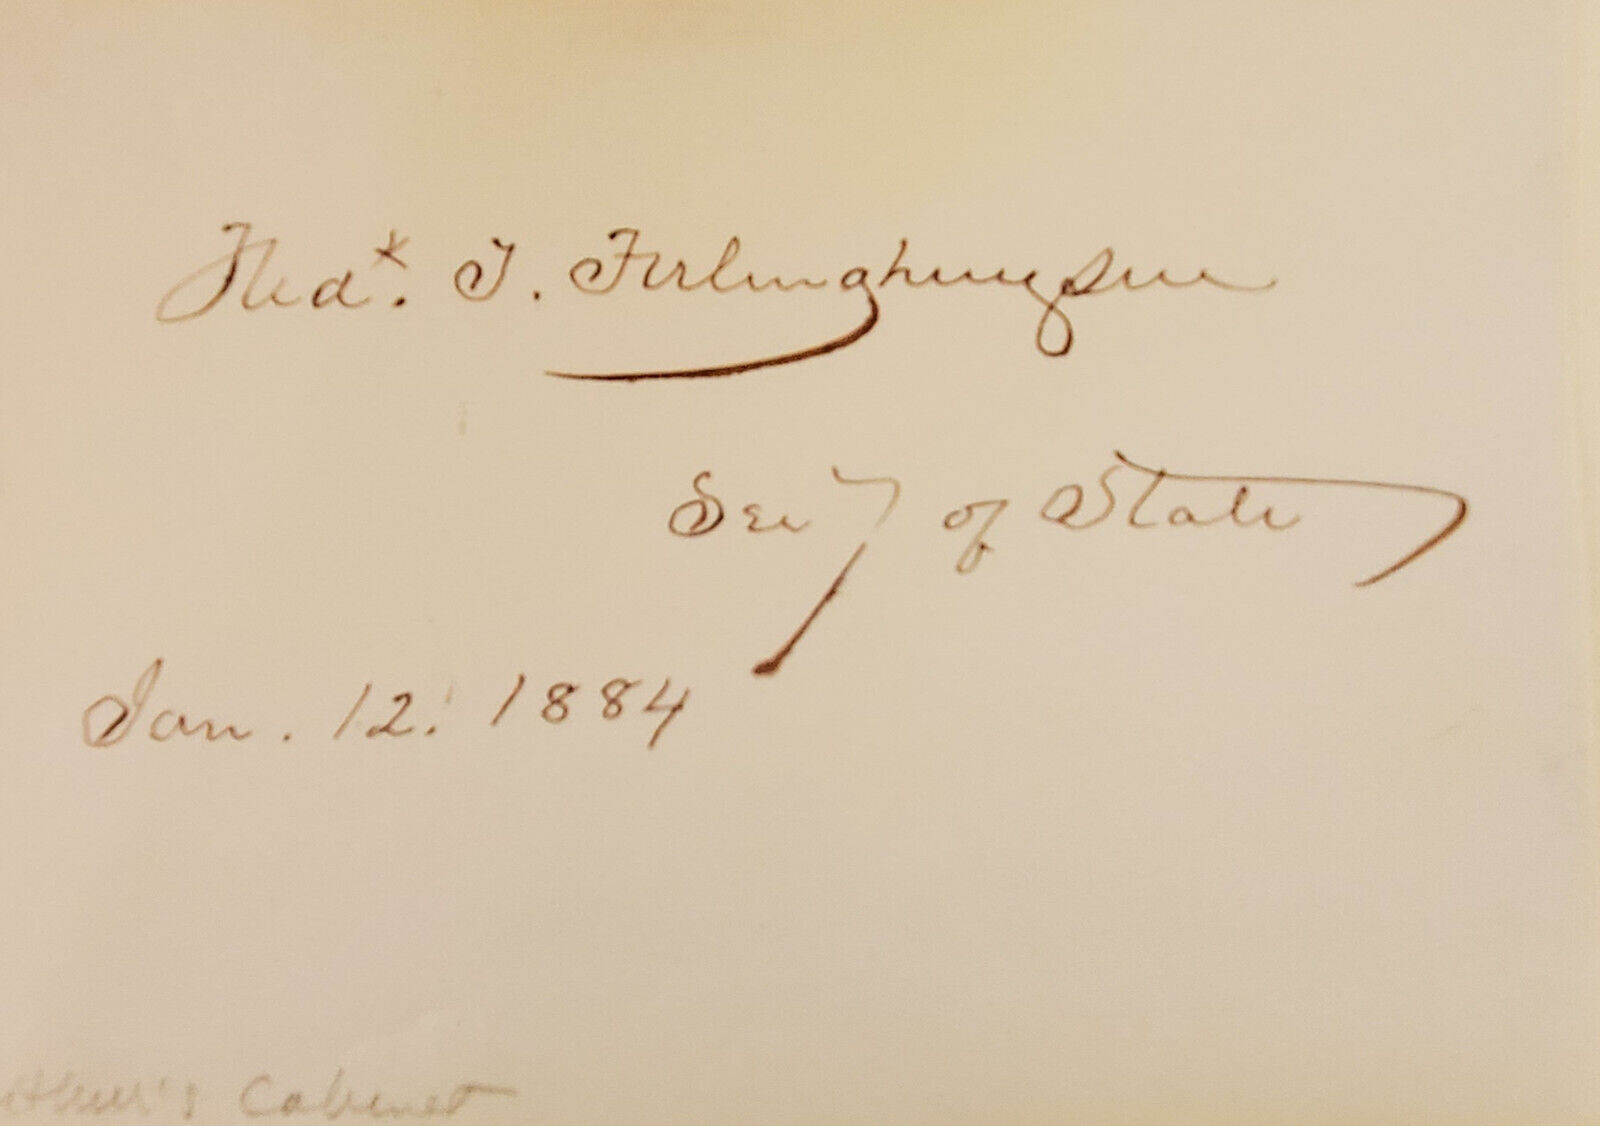 Fredk. T. Frelinghuysen
Secy of State
Jan. 12. 1884
Arthur's Cabinet